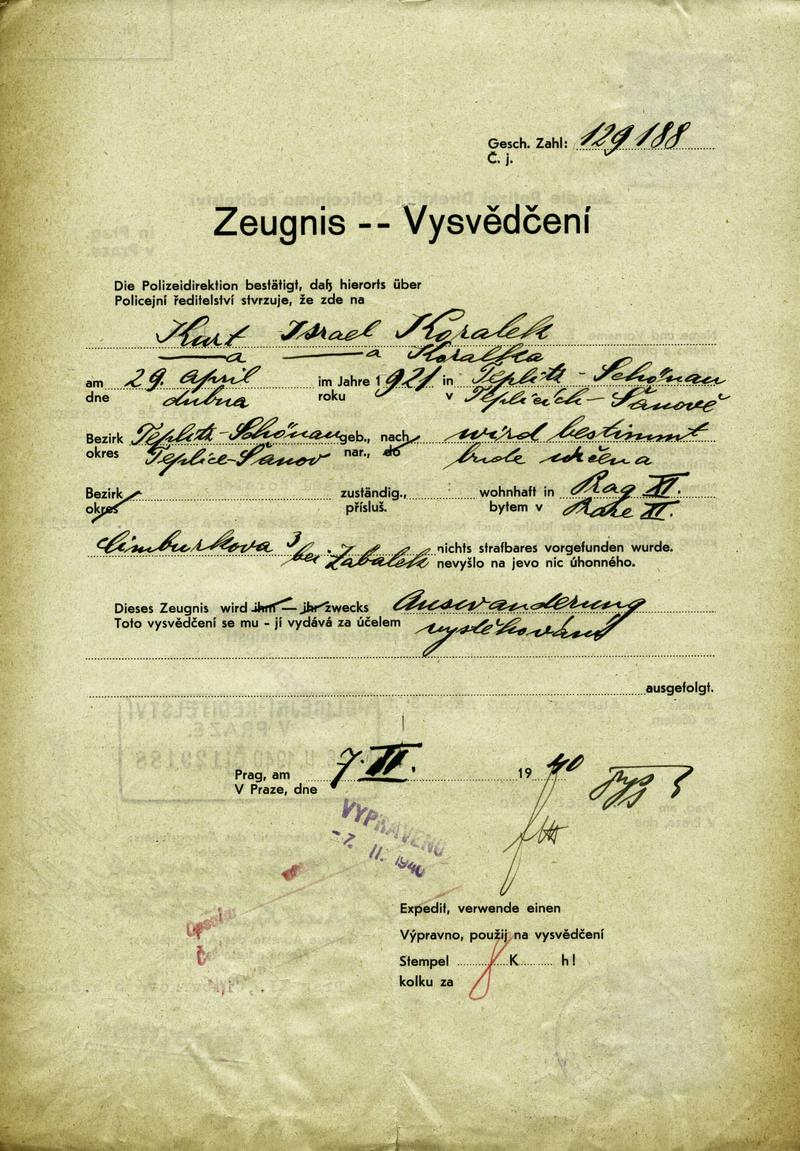 Gesch. Zahl: 129188
Č. j.
Zeugnis -- Vysvědčení
Die Polizeidirektion bestätigt, daß hierorts über
Policejní ředitelství stvrzuje, že zde na
Kurt Israel Koralek
a a Koralka
am 29. April im Jahre 1921 in Teplitz-Schönau
dne dubna roku v Teplicích-Šanově
Bezirk Teplitz-Schönau geb., nach wird bestimmt
okres Teplice-Šanov nar., do bude určena
Bezirk zuständig., wohnhaft in Prag XI.
okres přísluš. bytem v Praze XI.
Cimburkova 3 bei Zabalek nichts strafbares vorgefunden wurde.
nevyšlo na jevo nic úhonného.
Dieses Zeugnis wird ihm — ihr zwecks Auswanderung
Toto vysvědčení se mu - jí vydává za účelem vystěhování
ausgefolgt.
Prag, am 7. II. 1940
V Praze, dne
VYPRAVENO
-7. II. 1940
Expedit, verwende einen
Výpravno, použij na vysvědčení
Stempel 8 K h!
kolku za